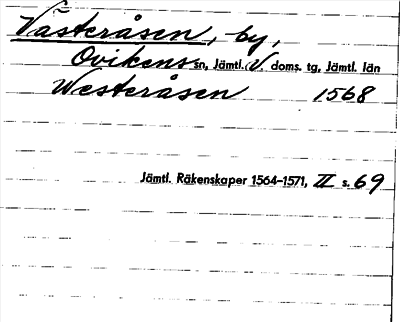 Västeråsen, by,
Ovikens sn, Jämtl. V. doms. tg, Jämtl. län
Westeråsen 1568
Jämtl. Räkenskaper 1564–1571, II s. 69